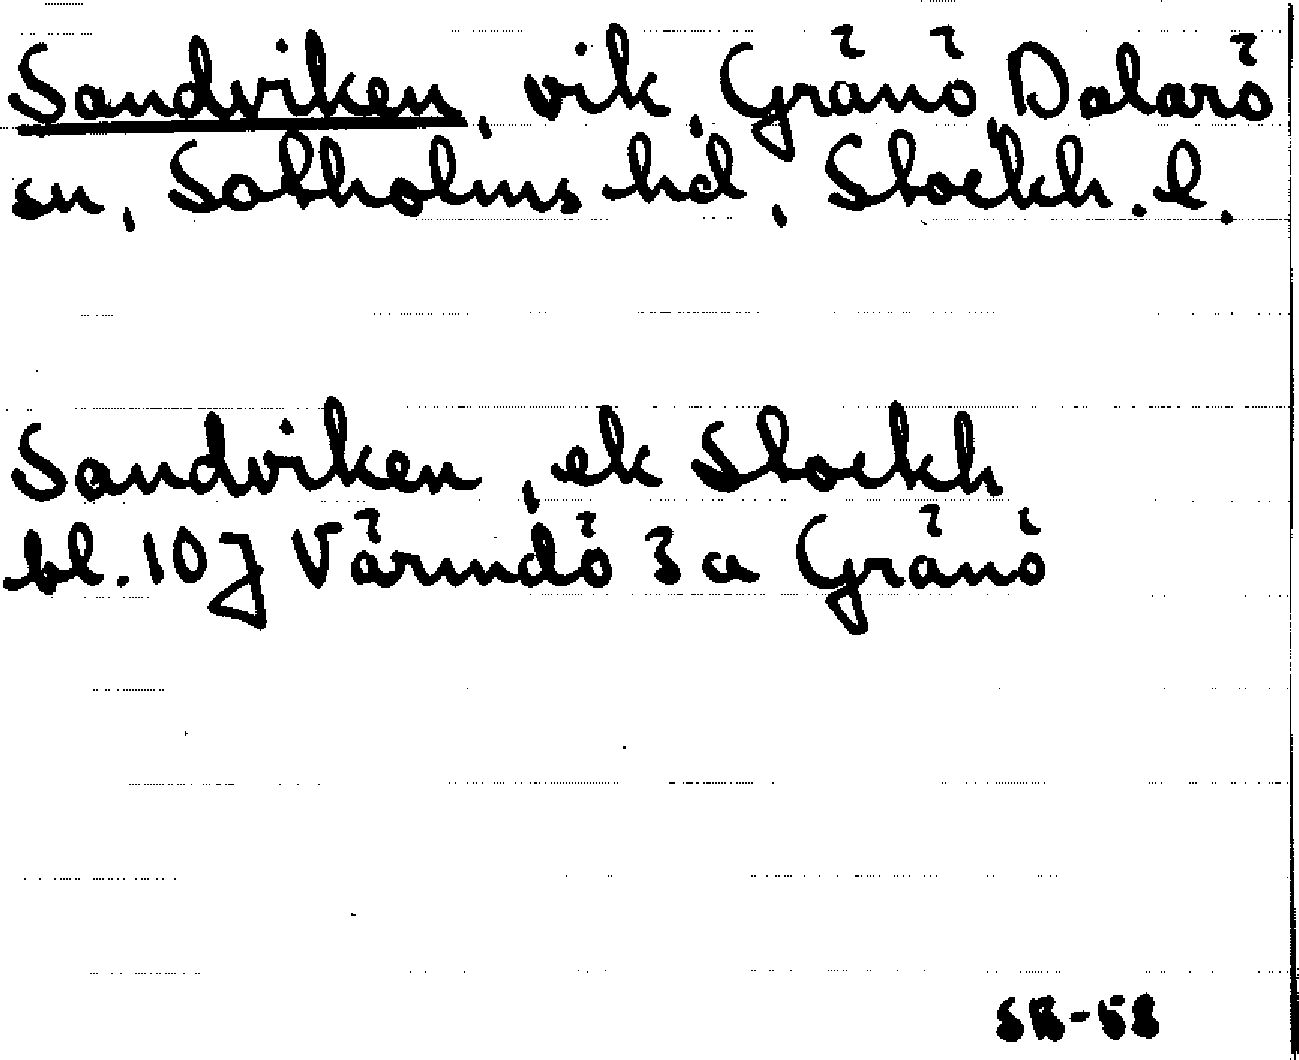 Sandviken, vik, Gränö, Dalarö
sn, Sotholms hd, Stockh. l.
Sandviken, ek Stockh
bl. 10J Värmdö 3 a Gränö
SR-58